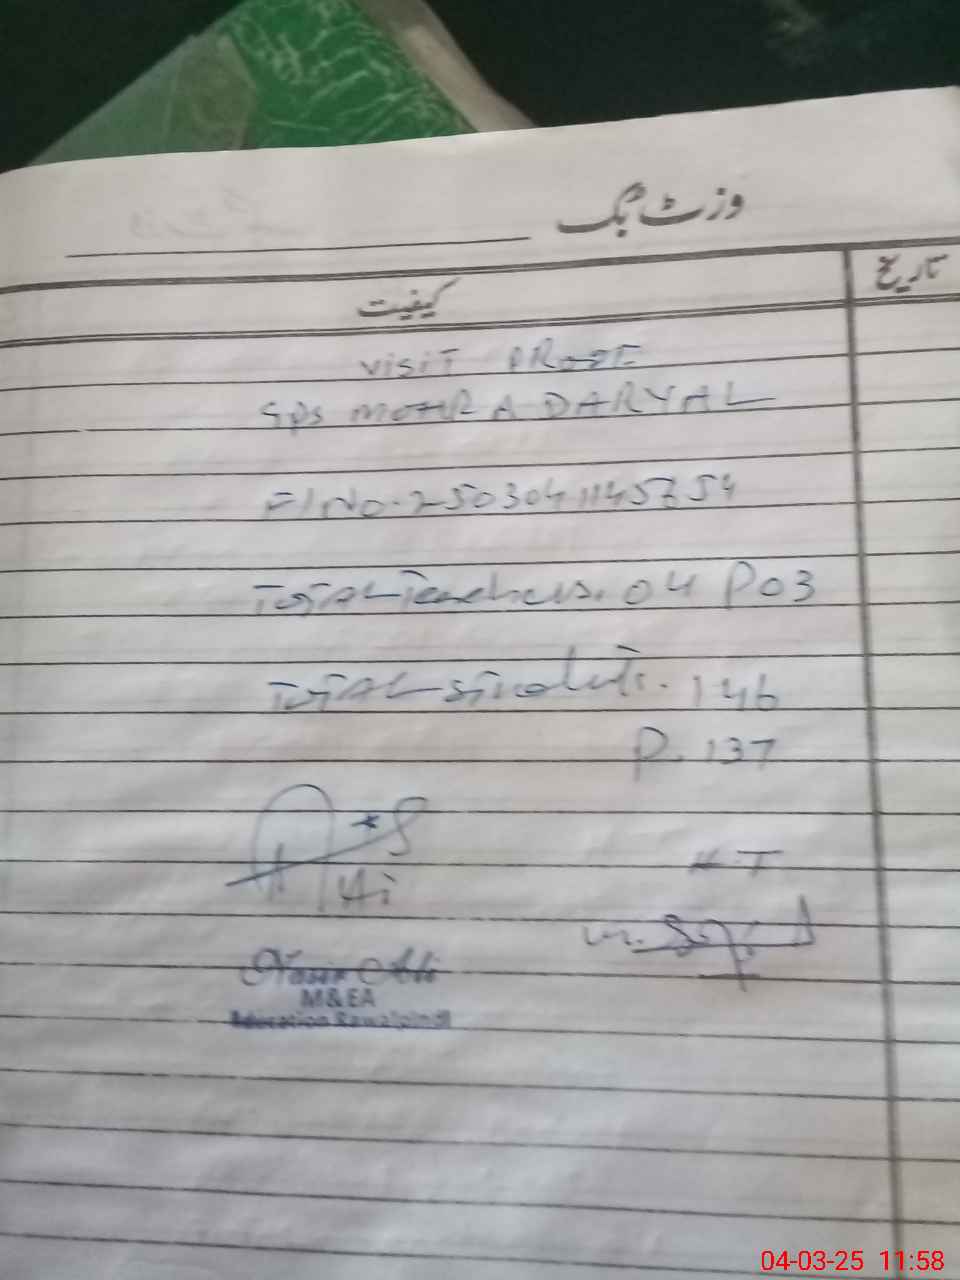 وزٹ بک
تاریخ
کیفیت
VISIT PROOF
GPS MOHRA DARYAL
TOTAL Teachers. 04 P03
TOTAL Students. 146
P. 137
H.T
Nasir Ali
M&EA
Education Rawalpindi
04-03-25 11:58